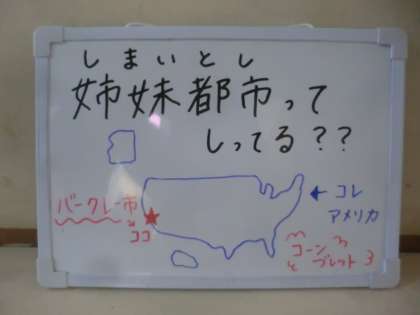 しまいとし
姉妹都市って
しってる??
バークレー市
ココ
← コレ
アメリカ
コーン
ブレット